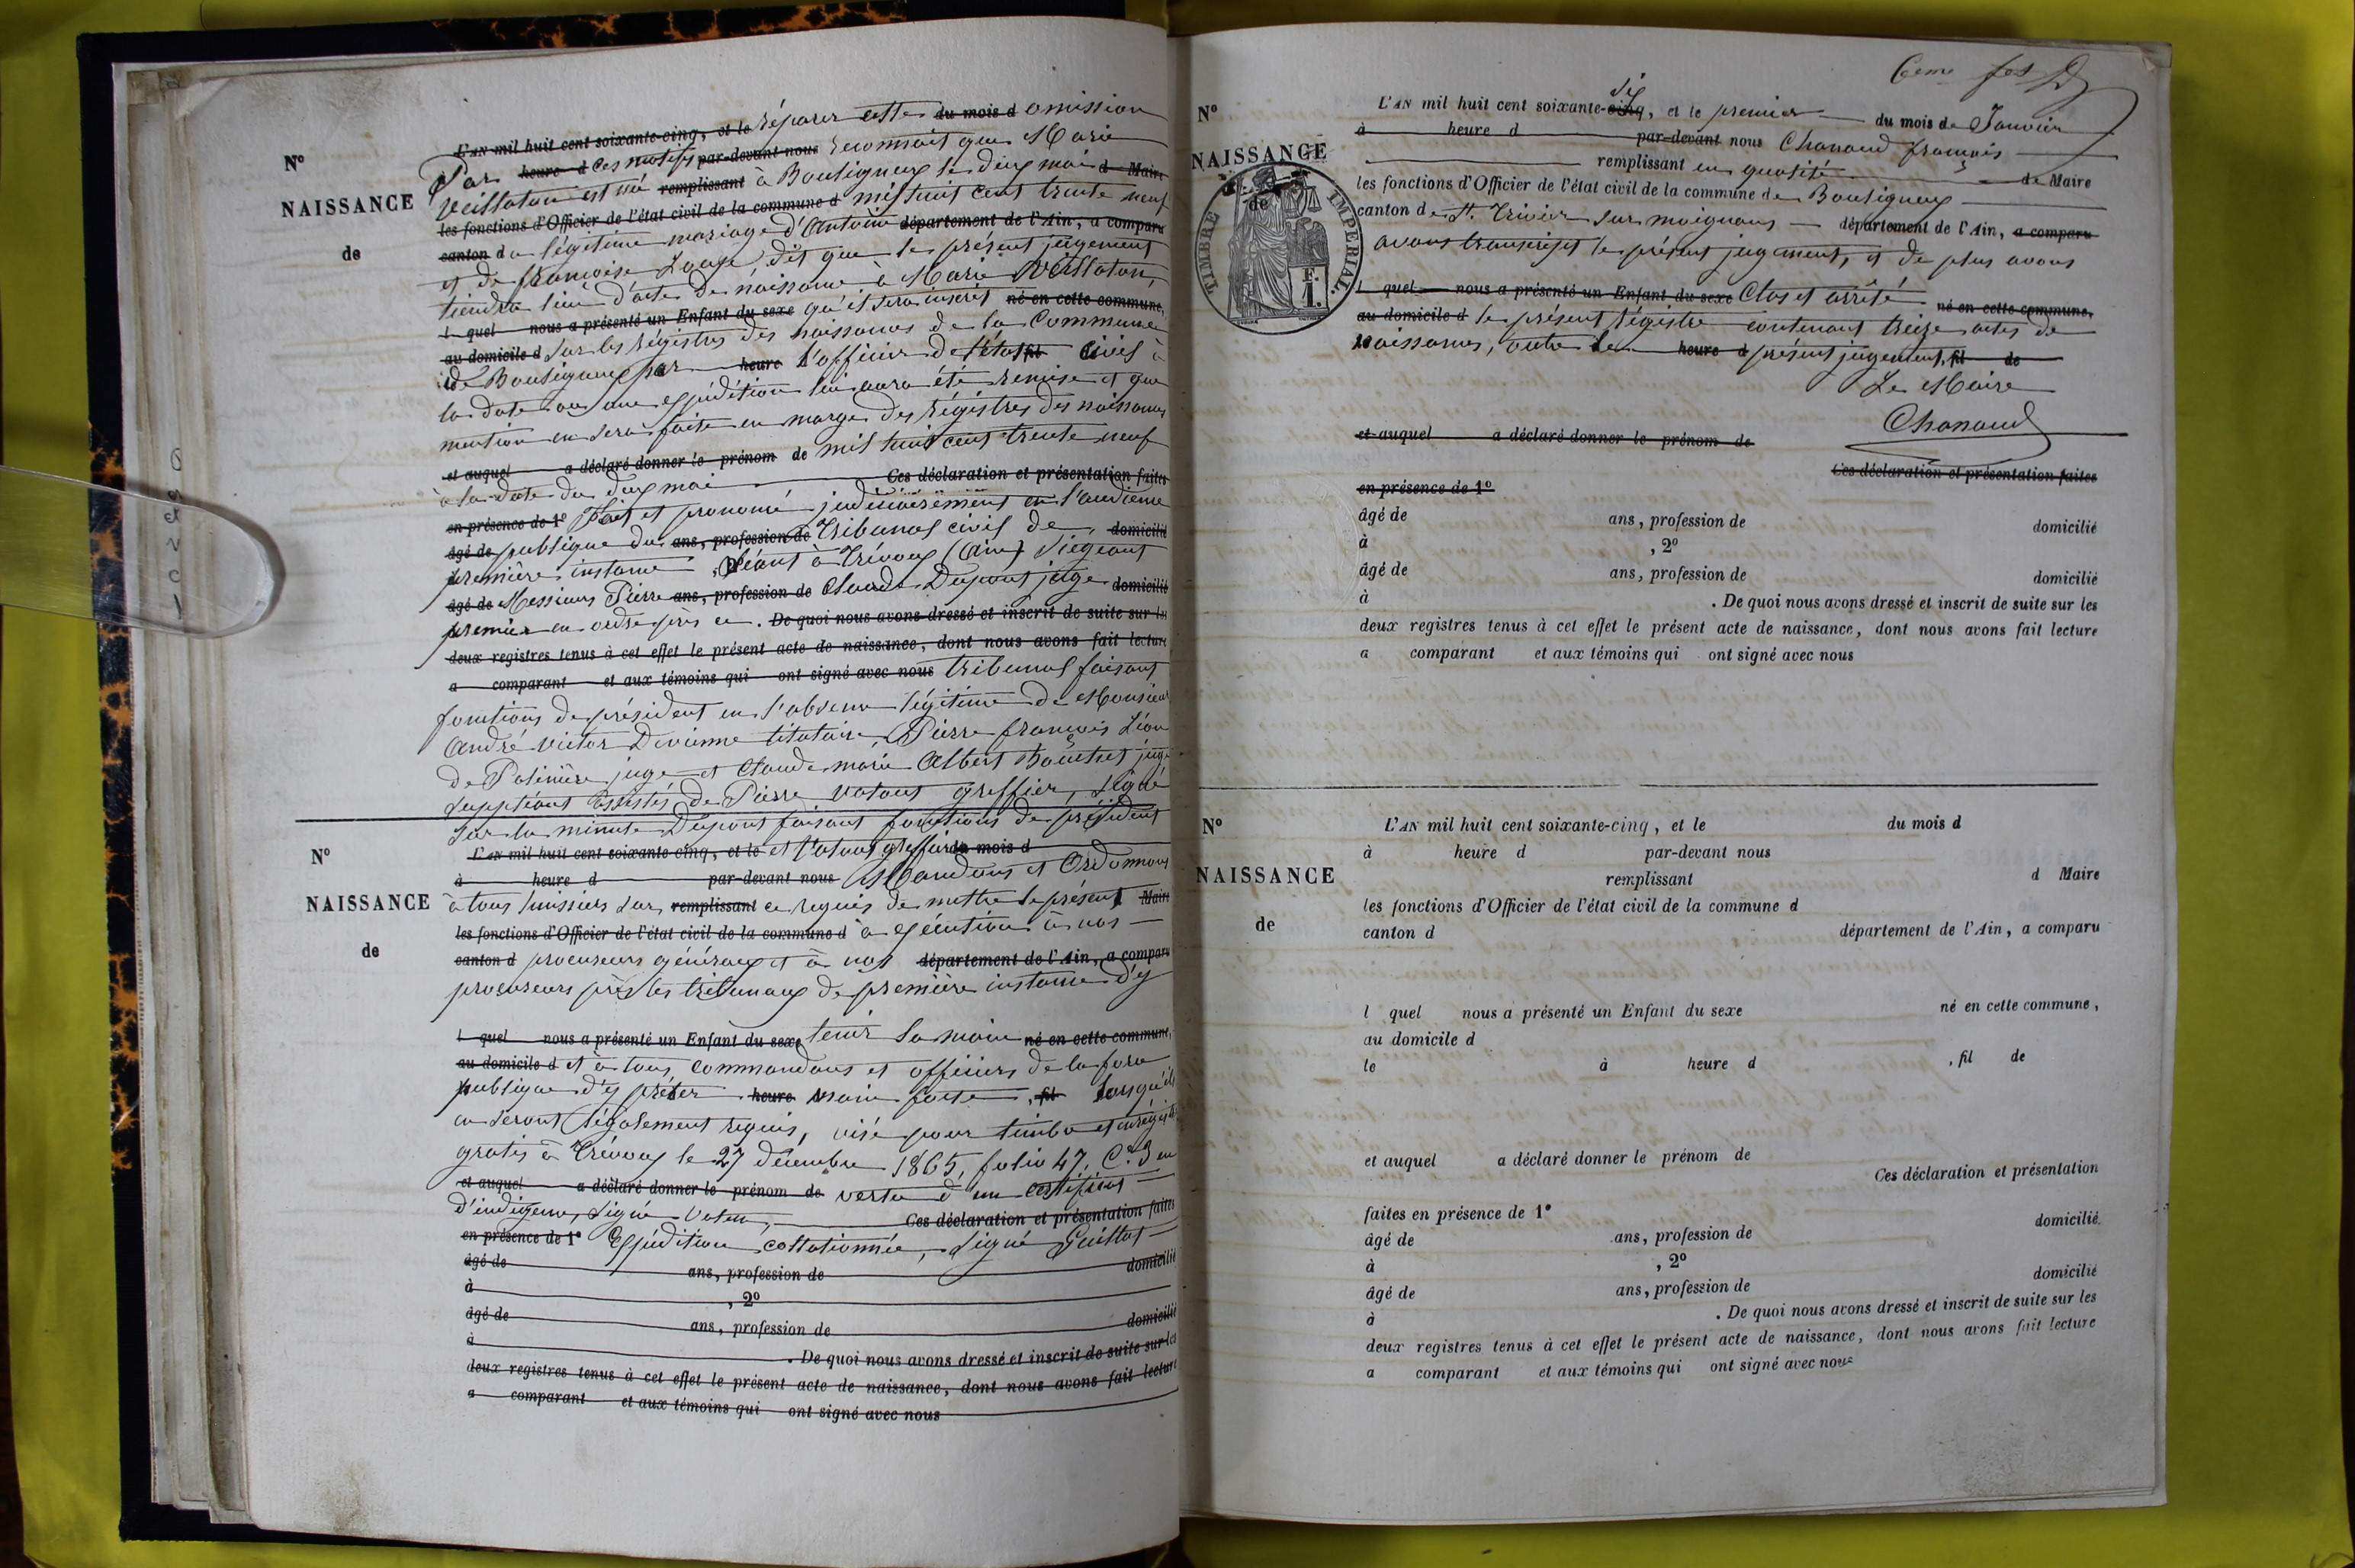 N°
NAISSANCE
de
L'AN mil huit cent soixante-cinq, et le réparer cette du mois d omission
Par heure d ces motifs par-devant nous reconnait que Marie
Veillaton est né remplissant à Bouligneux le dix mai d Maire
les fonctions d'Officier de l'état civil de la commune d mil huit cent trente neuf
canton d du légitime mariage d'Antoine département de l'Ain, a comparu
et de françoise Louge, dit que le présent jugement
tiendra lieu d'acte de naissance à Marie Veillaton,
l quel nous a présenté un Enfant du sexe qu'il sera inscrit né en cette commune,
au domicile d sur les régistres des naissances de la Commune
de Bouligneux par heure l'officier de l'état fil civil à
la date ou une expédition lui aura été remise et que
mention en sera faite en marge des régistres des naissances
et auquel a déclaré donner le prénom de mil huit cent trente neuf
à la date du dix mai Ces déclaration et présentation faites
en présence de 1° fait et prononcé judiciairement en l'audience
âgé de publique du ans, profession de Tribunal civil de domicilié
première instance séant à Trévoux (Ain) Siégeant
âgé de Messieurs Pierre ans, profession de Claude Dupont juge domicilié
premier en ordre près ce . De quoi nous avons dressé et inscrit de suite sur les
deux registres tenus à cet effet le présent acte de naissance, dont nous avons fait lecture
a comparant et aux témoins qui ont signé avec nous tribunal faisant
fonctions de président en l'absence légitime de Monsieur
André victor Devienne titulaire, Pierre françois Léon
de Polinière juge et Claude marie Albert juge
suppléant assistés de Pierre greffier, Signé
sur la minute Dupont faisant fonctions de président
N°
NAISSANCE
de
L'AN mil huit cent soixante-cinq, et le et greffier du mois d
à heure d par-devant nous Mandons et Ordonnons
à tous huissiers sur remplissant ce requis de mettre le présent Maire
les fonctions d'Officier de l'état civil de la commune d à exécution à nos
canton d procureurs généraux et à nos département de l'Ain, a comparu
procureurs près les tribunaux de première instance d'y
l quel nous a présenté un Enfant du sexe tenir la main né en cette commune,
au domicile d et à tous commandans et officiers de la force
publique d'y prêter heure main forte , fil lorsqu'ils
en seront légalement requis, visé pour timbre et enrégistré
gratis à Trévoux le 27 décembre 1865, folio 47, C. 3 en
et auquel a déclaré donner le prénom de vertu d'un certificat
d'indigence, Signé Ces déclaration et présentation faites
en présence de 1° Expédition collationnée, Signé Guillot
âgé de ans, profession de domicilié
à , 2°
âgé de ans, profession de domicilié
à . De quoi nous avons dressé et inscrit de suite sur les
deux registres tenus à cet effet le présent acte de naissance, dont nous avons fait lecture
a comparant et aux témoins qui ont signé avec nous
6eme
N°
NAISSANCE
de
TIMBRE IMPERIAL
F.
1.
six
L'AN mil huit cent soixante-cinq, et le premier du mois de Janvier
à heure d par-devant nous Chanaud françois
remplissant en qualité de Maire
les fonctions d'Officier de l'état civil de la commune de Bouligneux
canton de St. Trivier sur moignans département de l'Ain, a comparu
avons transcript le présent jugement, et de plus avons
l quel nous a présenté un Enfant du sexe Clos et arrêté né en cette commune,
au domicile d le présent régistre contenant treize actes de
naissances, outre le heure d présent jugement, fil de
Le Maire
Chanaud
et auquel a déclaré donner le prénom de
Ces déclaration et présentation faites
en présence de 1°
âgé de ans, profession de domicilié
à , 2°
âgé de ans, profession de domicilié
à . De quoi nous avons dressé et inscrit de suite sur les
deux registres tenus à cet effet le présent acte de naissance, dont nous avons fait lecture
a comparant et aux témoins qui ont signé avec nous
N°
NAISSANCE
de
L'AN mil huit cent soixante-cinq, et le du mois d
à heure d par-devant nous
remplissant d Maire
les fonctions d'Officier de l'état civil de la commune d
canton d département de l'Ain, a comparu
l quel nous a présenté un Enfant du sexe né en cette commune,
au domicile d
le à heure d , fil de
et auquel a déclaré donner le prénom de
Ces déclaration et présentation
faites en présence de 1°
âgé de ans, profession de domicilié
à , 2°
âgé de ans, profession de domicilié
à . De quoi nous avons dressé et inscrit de suite sur les
deux registres tenus à cet effet le présent acte de naissance, dont nous avons fait lecture
a comparant et aux témoins qui ont signé avec nous